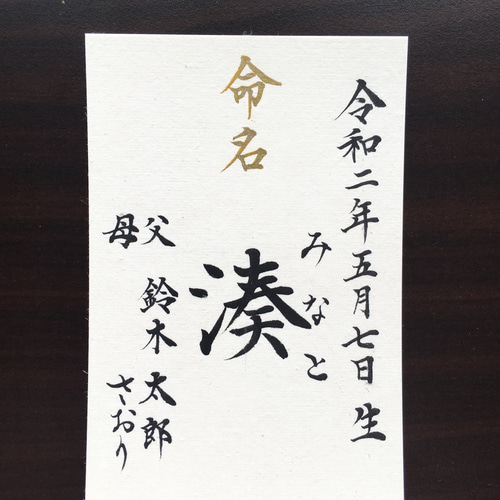 命名
令和二年五月七日生
みなと
湊
父 鈴木 太郎
母 さおり